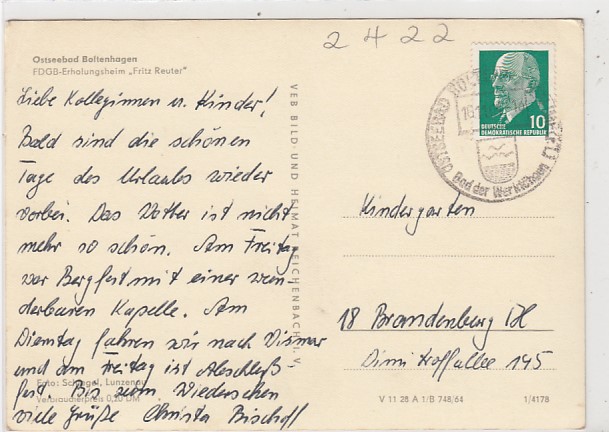 2 4 2 2
Ostseebad Boltenhagen
FDGB-Erholungsheim „Fritz Reuter"
Liebe Kolleginnen u. Kinder!
Bald sind die schönen
Tage des Urlaubs wieder
vorbei. Das Wetter ist nicht
mehr so schön. Am Freitag
war Bergfest mit einer wun
derbaren Kapelle. Am
Dienstag fahren wir nach Wismar
und am Freitag ist Abschluß
fest. Bis zum Wiedersehen
viele Grüße Christa Bischoff
Verbraucherpreis 0,20 DM
VEB BILD UND HEIMAT REICHENBACH I. V.
DEUTSCHE
DEMOKRATISCHE REPUBLIK
10
OSTSEEBAD
Bad der Werktätigen
Kindergarten
18 Brandenberg
Dimitroffallee 145
V 11 28 A 1/B 748/64
1/4178